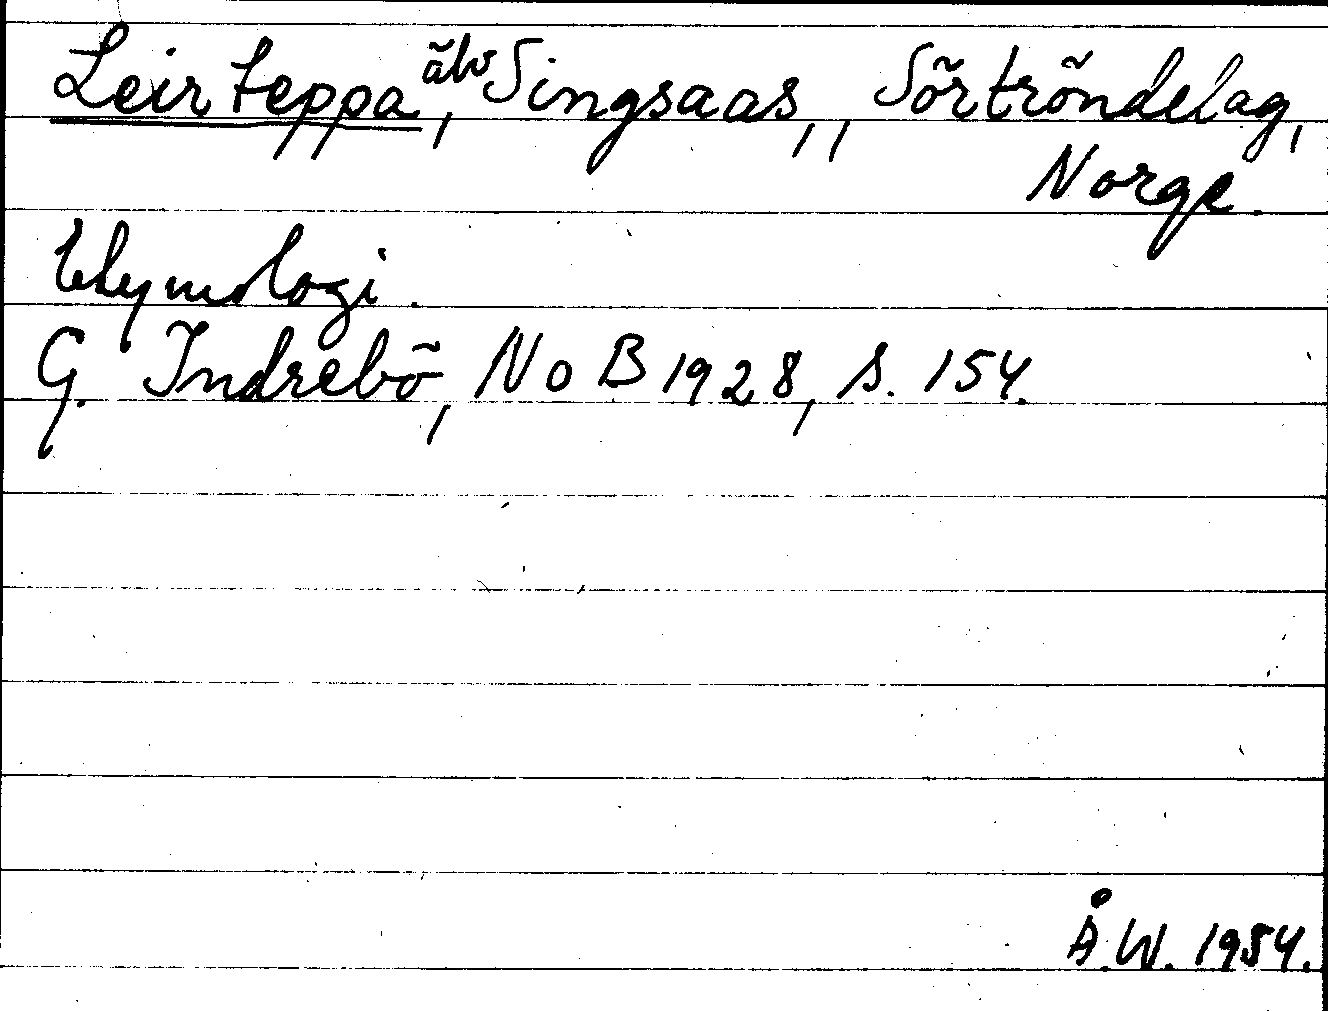 Leirteppa, älv Singsaas,, Sörtröndelag,
Norge.
Etymologi.
G. Indrebö, NoB 1928, s. 154.
Å.W. 1954.